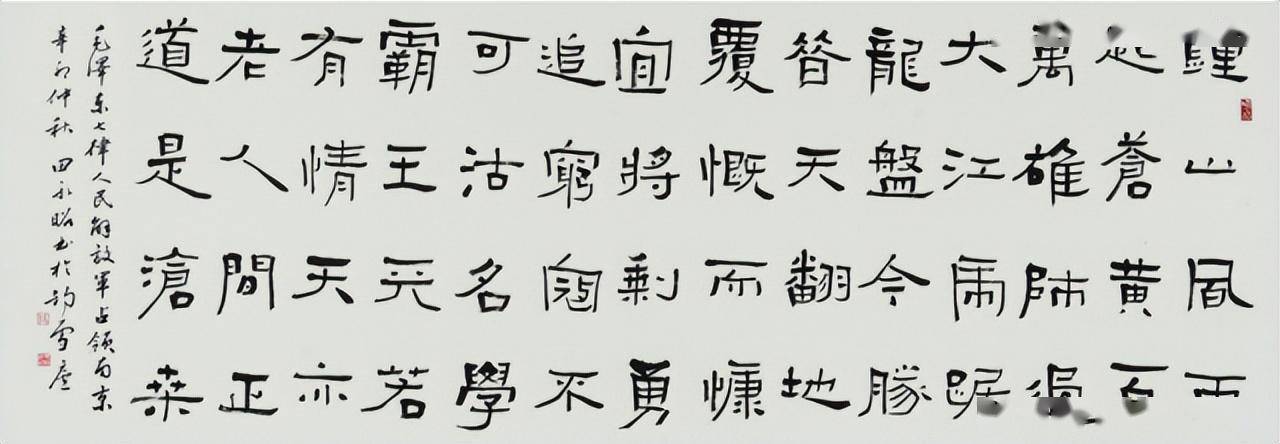 鍾山風雨
起蒼黃百
萬雄師過
大江虎踞
龍盤今勝
昔天翻地
覆慨而慷
宜將剩勇
追窮寇不
可沽名學
霸王天若
有情天亦
老人間正
道是滄桑
毛澤东七律人民解放軍占領南京
辛卯仲秋 田永昭书於韵雪廬